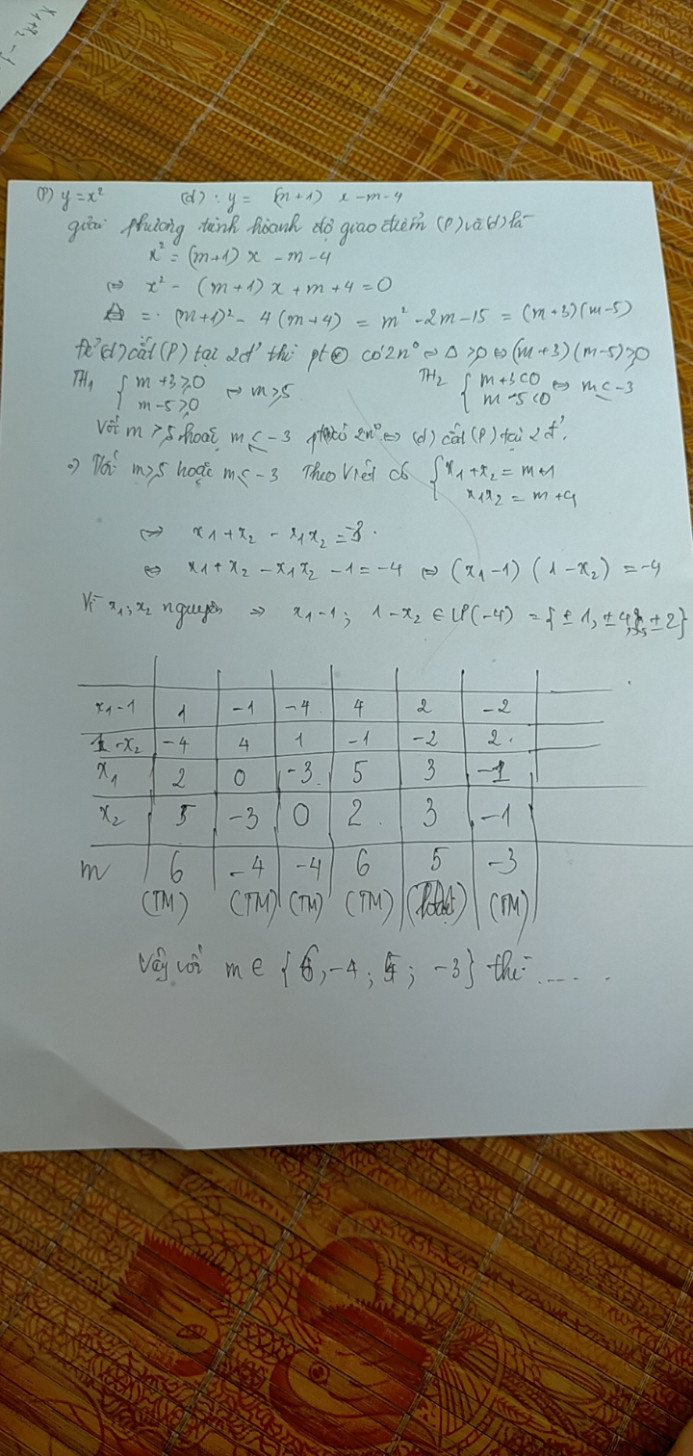 x₁+x₂ -1
(P) y = x² (d) : y = (m+1) x - m - 4
giải phương trình hoành độ giao điểm (P) và (d) là
x² = (m+1) x - m - 4
⇔ x² - (m+1) x + m + 4 = 0
Δ = (m+1)² - 4(m+4) = m² - 2m - 15 = (m+3)(m-5)
để (d) cắt (P) tại 2đ' thì pt có 2n° ⇔ Δ > 0 ⇔ (m+3)(m-5) > 0
TH₁ { m+3 > 0 ⇔ m > 5 TH₂ { m+3 < 0 ⇔ m < -3
m-5 > 0 m-5 < 0
Với m > 5 hoặc m < -3 pt có 2n° ⇔ (d) cắt (P) tại 2đ'.
Với m > 5 hoặc m < -3 Theo Viét có { x₁+x₂ = m+1
x₁x₂ = m+4
⇔ x₁+x₂ - x₁x₂ = -3.
⇔ x₁+x₂ - x₁x₂ - 1 = -4 ⇔ (x₁-1) (1-x₂) = -4
Vì x₁; x₂ nguyên ⇒ x₁-1; 1-x₂ ∈ Ư(-4) = {±1, ±4, ±2}
x₁-1 1 -1 -4 4 2 -2
1-x₂ -4 4 1 -1 -2 2
x₁ 2 0 -3 5 3 -1
x₂ 5 -3 0 2 3 -1
m 6 -4 -4 6 5 -3
(TM) (TM) (TM) (TM) (TM)
Vậy với m ∈ {6, -4; 5; -3} thì .....